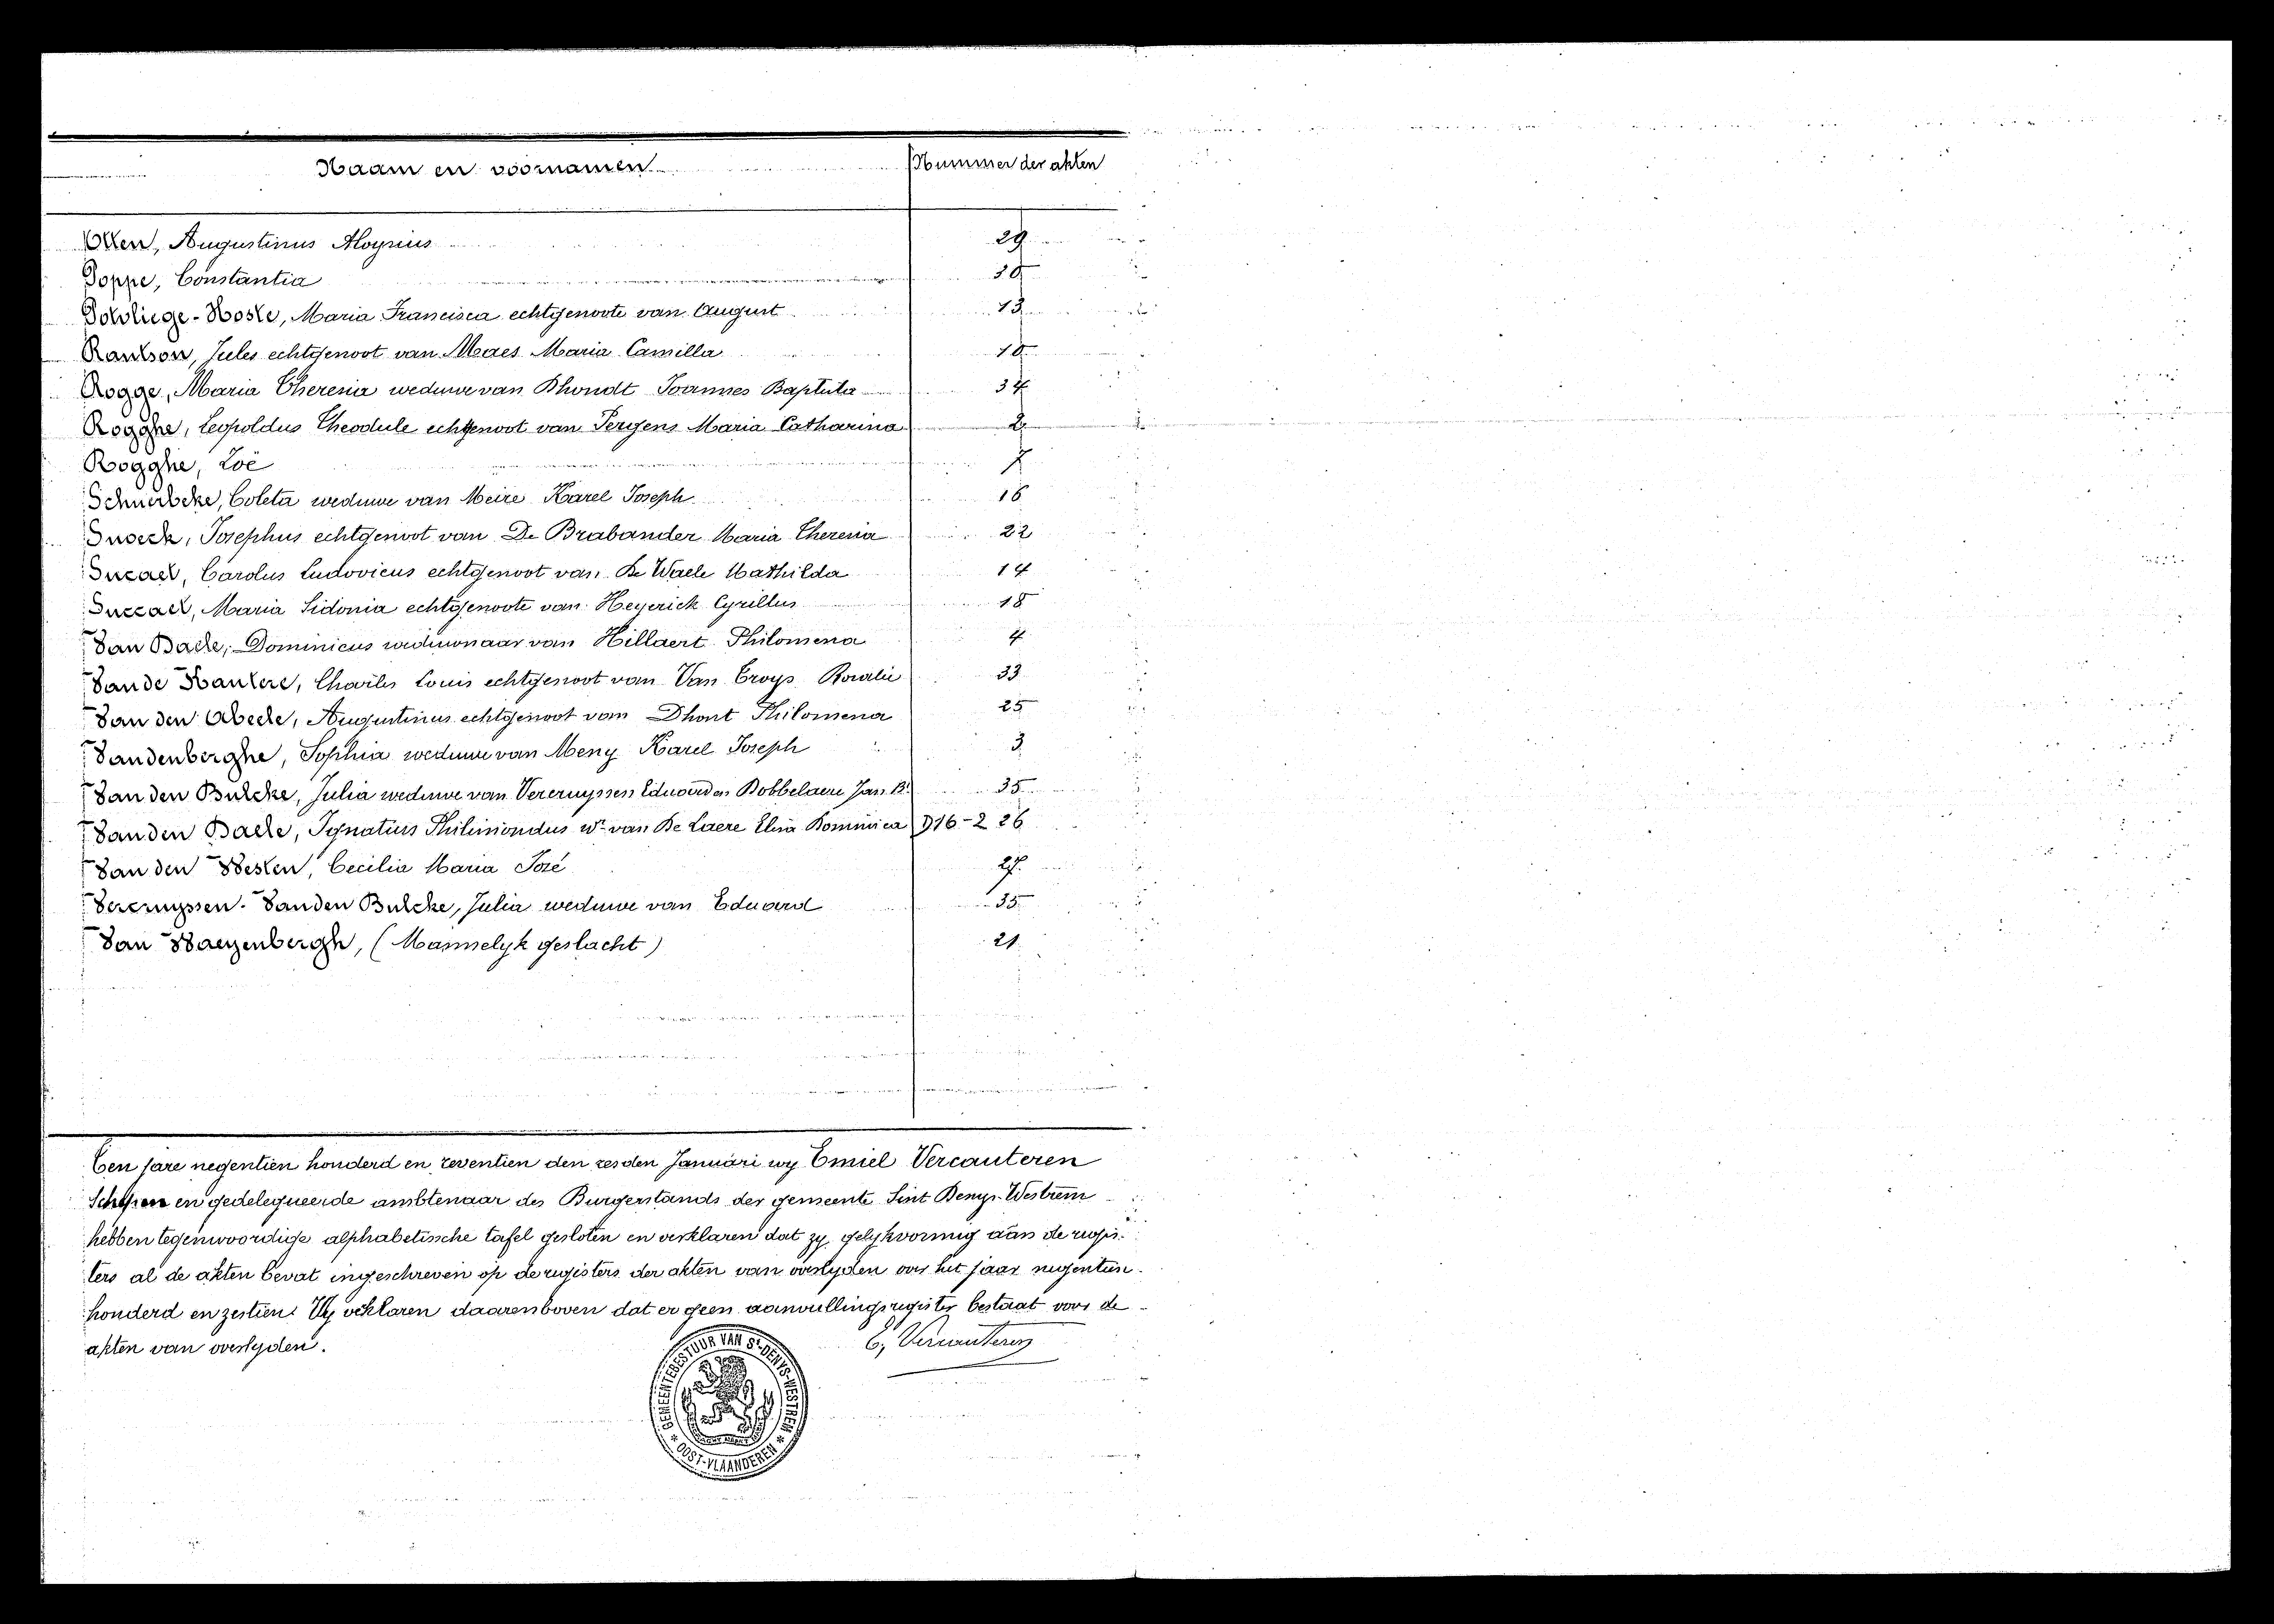 Naam en voornamen Nummer der akten
Otten, Augustinus Aloysius 29
Poppe, Constantia 30
Potvliege-Hoste, Maria Francisca echtgenoote van August 13
Rantson, Jules echtgenoot van Maes Maria Camilla 10
Rogge, Maria Theresia weduwe van Dhondt Joannes Baptista 34
Rogghe, Leopoldus Theodule echtgenoot van Pergens Maria Catharina 2
Rogghe, Zoë 7
Schuerbeke, Coleta weduwe van Meire Karel Joseph 16
Snoeck, Josephus echtgenoot van De Brabander Maria Theresia 22
Sucaet, Carolus Ludovicus echtgenoot van De Waele Mathilda 14
Succaet, Maria Sidonia echtgenoote van Heyerick Cyrillus 18
Van Daele, Dominicus weduwnaar van Hillaert Philomena 4
Van de Kantere, Charles Louis echtgenoot van Van Troys Rosalie 33
Van den Abeele, Augustinus echtgenoot van Dhont Philomena 25
Vandenberghe, Sophia weduwe van Meny Karel Joseph 3
Van den Bulcke, Julia weduwe van Vercruyssen Eduard en Dobbelaere Jan Bt 35
Van den Daele, Ignatius Philimondus wr van De Laere Elisa Dominica D16-2 26
Van den Westen, Cecilia Maria José 27
Vercruyssen-Van den Bulcke, Julia weduwe van Eduard 35
Van Waeyenbergh, (Mannelyk geslacht) 21
Ten jare negentien honderd en zeventien den zesden Januari wy Emiel Vercauteren
Schepen en gedelegueerde ambtenaar des Burgerstands der gemeente Sint Denys-Westrem
hebben tegenwoordige alphabetische tafel gesloten en verklaren dat zy gelykvormig aan de regis-
ters al de akten bevat ingeschreven op de registers der akten van overlyden over het jaar negentien-
honderd en zestien. Wy verklaren daarenboven dat er geen aanvullingsregister bestaat voor de
akten van overlyden.
E. Vercauteren
GEMEENTEBESTUUR VAN St-DENYS-WESTREM
* OOST-VLAANDEREN *